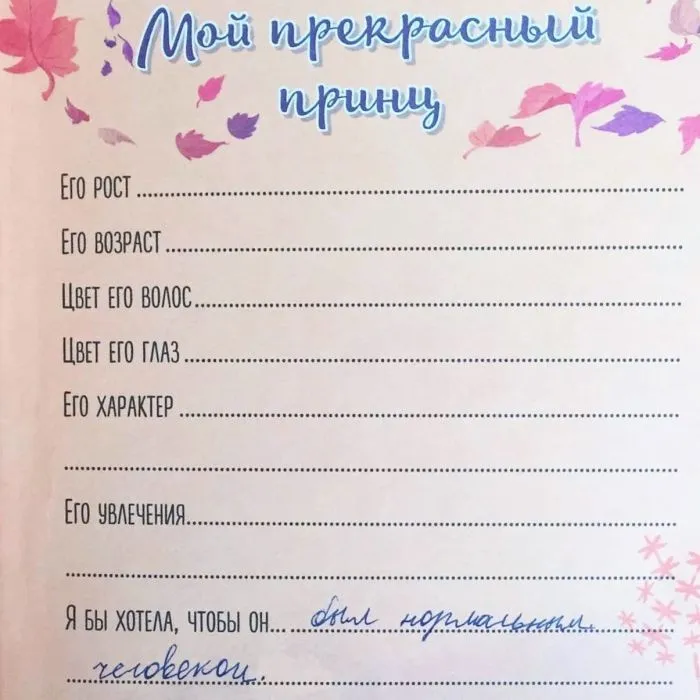 Мой прекрасный
принц
Его рост
Его возраст
Цвет его волос
Цвет его глаз
Его характер
Его увлечения
Я бы хотела, чтобы он... был нормальным
человеком.